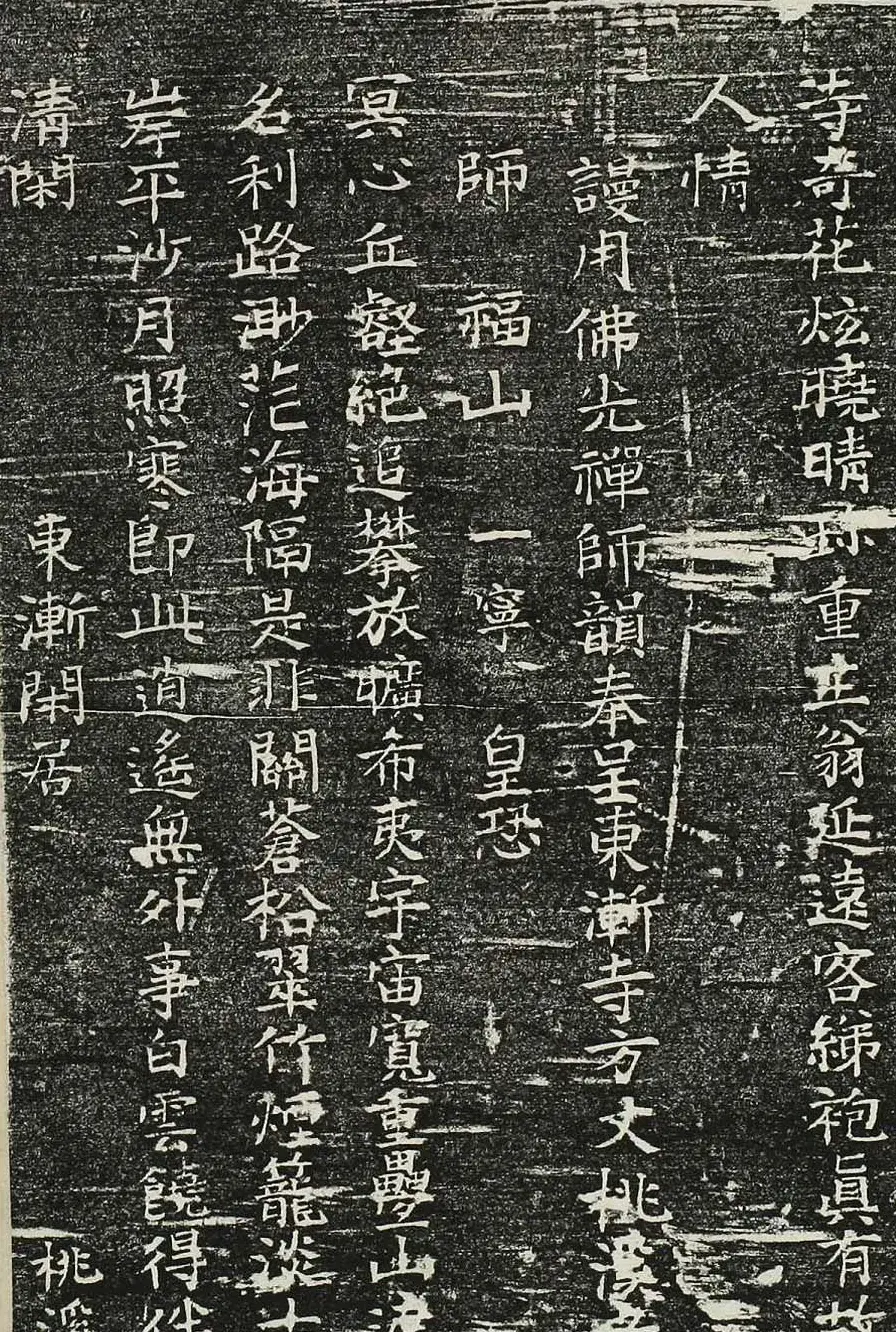 寺奇花炫曉晴珎重主翁延遠客綈袍眞有故
人情
謾用佛光禪師韻奉呈東漸寺方丈桃溪
師 福山 一寧 皇恐
冥心丘壑絕追攀放曠希夷宇宙寬重疊山
名利路渺茫海隔是非關蒼松翠竹煙籠淡
岸平沙月照寒即此逍遙無外事白雲饒得伴
清閑 東漸閑居 桃溪